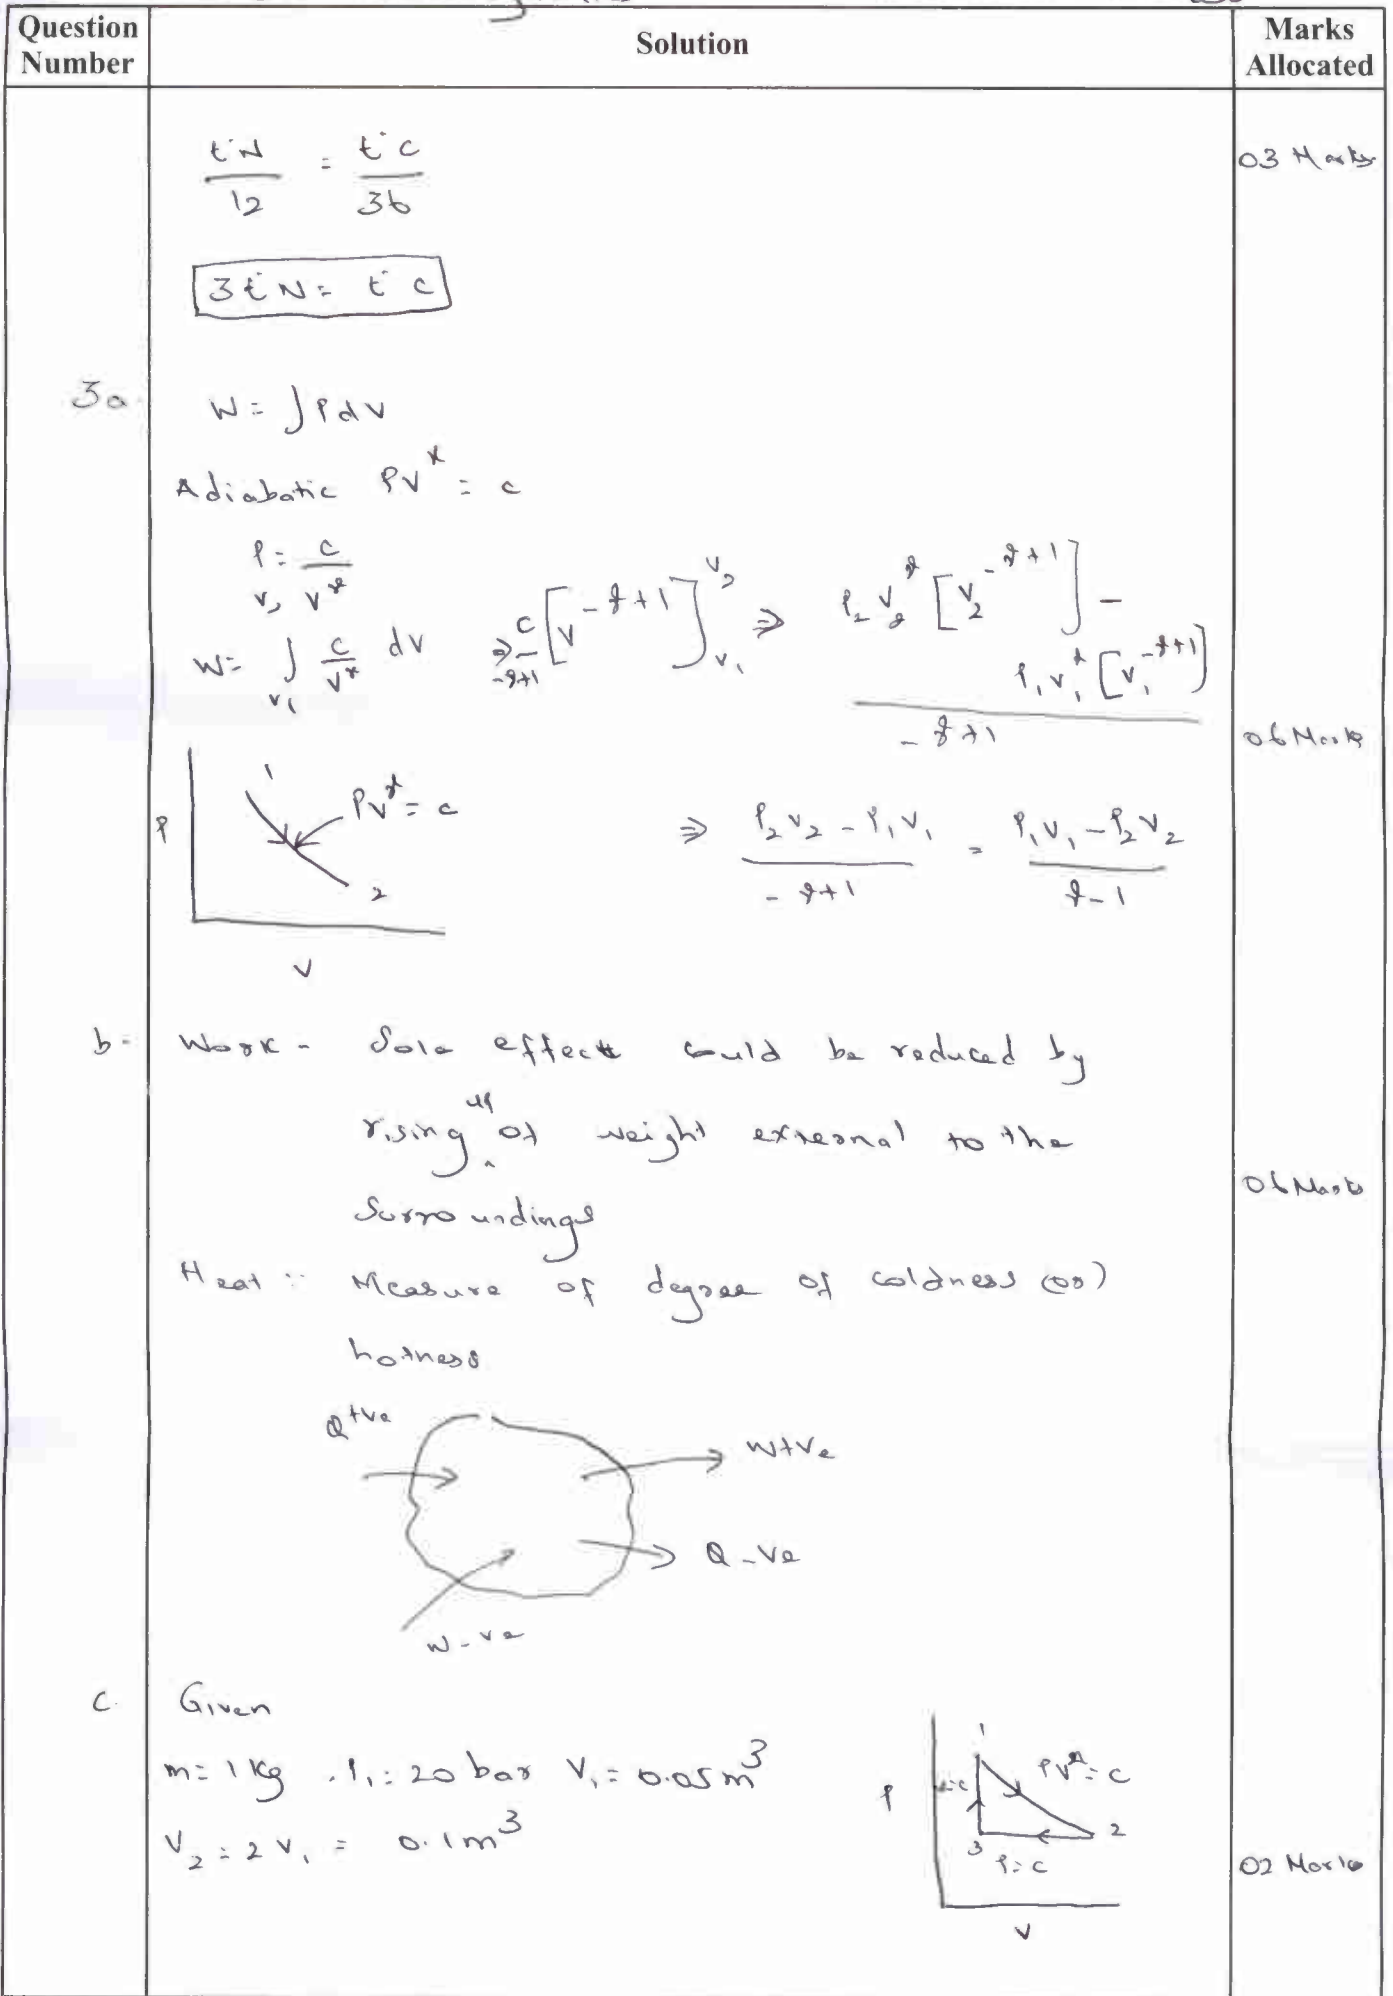 Question Number
Solution
Marks Allocated
t°N/12 = t°C/36
03 Marks
3t°N = t°C
3a.
W = ∫PdV
Adiabatic PV^γ = c
P = c/V^γ
W = ∫_{V1}^{V2} c/V^γ dV ⇒ c/(-γ+1) [V^{-γ+1}]_{V1}^{V2} ⇒ (P2V2^γ [V2^{-γ+1}] - P1V1^γ [V1^{-γ+1}])/(-γ+1)
06 Marks
1
PV^γ = c
P
2
V
⇒ (P2V2 - P1V1)/(-γ+1) = (P1V1 - P2V2)/(γ-1)
b-
Work - Sole effect could be reduced by
rising up of weight external to the
surroundings
06 Marks
Heat :- Measure of degree of coldness (or)
hotness
Q +ve
W+ve
Q -ve
W -ve
c.
Given
m = 1 Kg . P1 = 20 bar V1 = 0.05m³
V2 = 2V1 = 0.1m³
1
PV^n = C
P
2
3
P=C
V
02 Marks